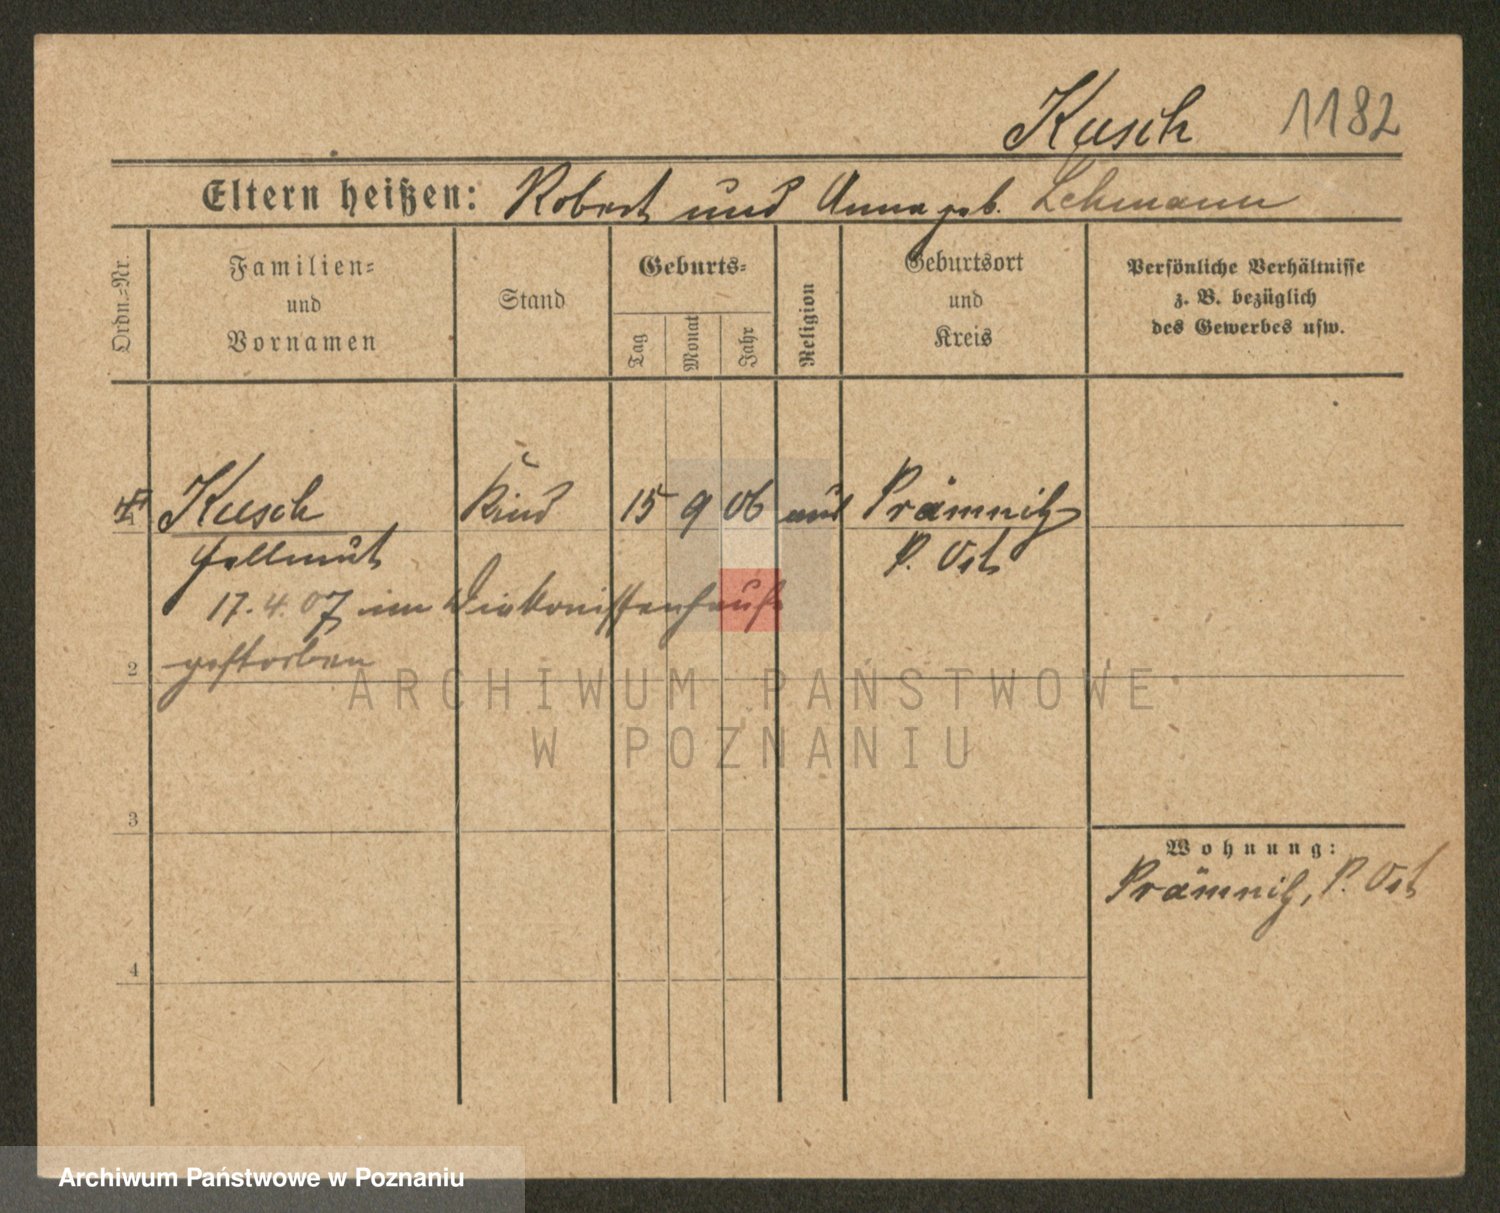 Kusch 1182
Eltern heißen: Robert und Anna geb. Lehmann
Ordn.-Nr.
Familien-
und
Vornamen
Stand
Geburts-
Tag
Monat
Jahr
Religion
Geburtsort
und
Kreis
Persönliche Verhältnisse
z. B. bezüglich
des Gewerbes usw.
Kusch Kind 15 9 06 Prämnitz
Hellmut P. Ost
17.4.07 im Diakonissenhause
2 gestorben
ARCHIWUM PAŃSTWOWE
W POZNANIU
3
Wohnung:
Prämnitz, P. Ost
4
Archiwum Państwowe w Poznaniu